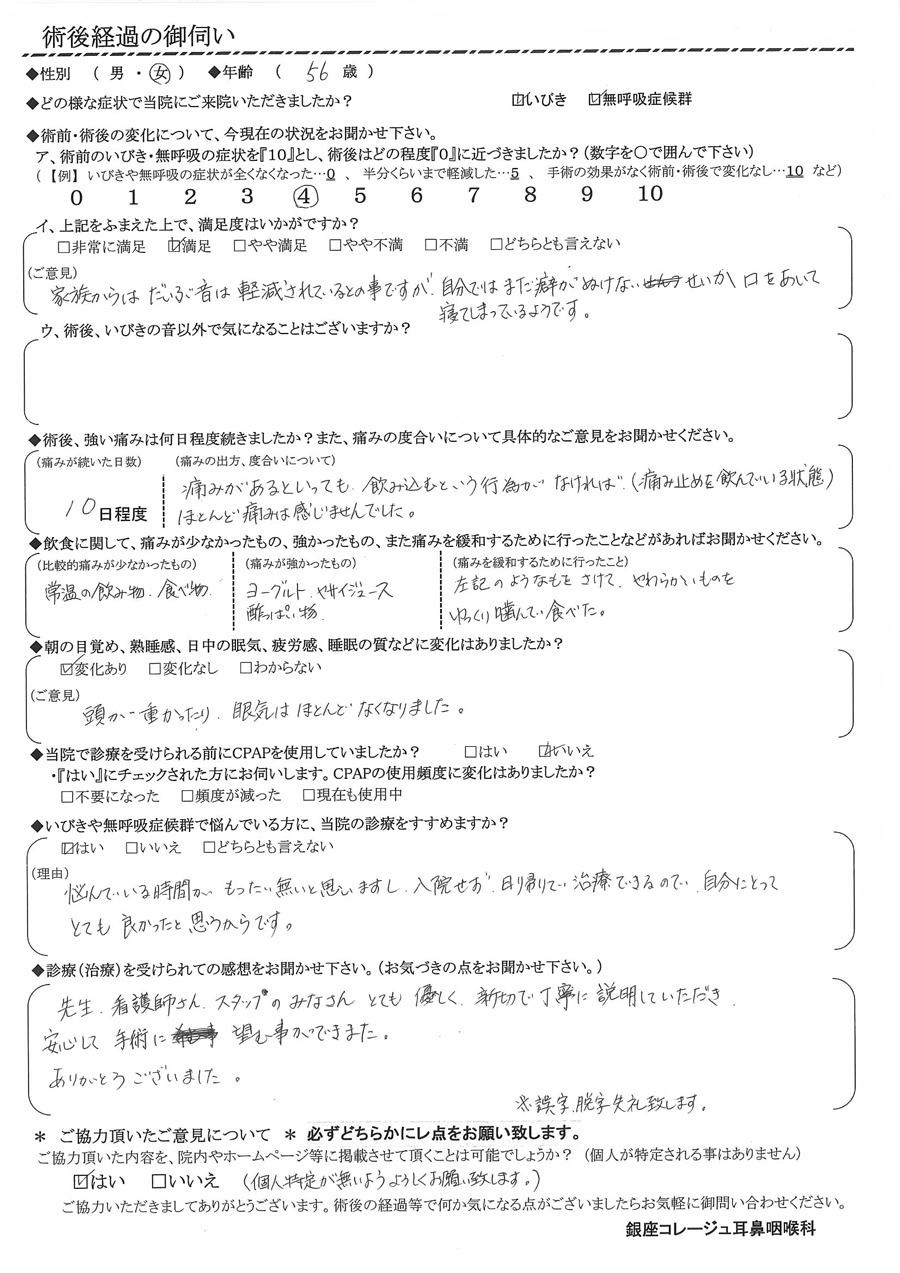 術後経過の御伺い
◆性別 ( 男 ・ 女 ) ◆年齢 ( 56 歳 )
◆どの様な症状で当院にご来院いただきましたか? ☑いびき ☑無呼吸症候群
◆術前・術後の変化について、今現在の状況をお聞かせ下さい。
ア、術前のいびき・無呼吸の症状を『10』とし、術後はどの程度『0』に近づきましたか?(数字を○で囲んで下さい)
(【例】いびきや無呼吸の症状が全くなくなった…0 、 半分くらいまで軽減した…5 、 手術の効果がなく術前・術後で変化なし…10 など)
0 1 2 3 ④ 5 6 7 8 9 10
イ、上記をふまえた上で、満足度はいかがですか?
□非常に満足 ☑満足 □やや満足 □やや不満 □不満 □どちらとも言えない
(ご意見)
家族からは だいぶ音は 軽減されているとの事ですが、自分ではまだ癖がぬけない せいか 口をあいて
寝てしまっているようです。
ウ、術後、いびきの音以外で気になることはございますか?
◆術後、強い痛みは何日程度続きましたか?また、痛みの度合いについて具体的なご意見をお聞かせください。
(痛みが続いた日数) (痛みの出方、度合いについて)
痛みがあるといっても、飲み込むという行為が なければ、(痛み止めを飲んでいる状態)
10日程度 ほとんど痛みは感じませんでした。
◆飲食に関して、痛みが少なかったもの、強かったもの、また痛みを緩和するために行ったことなどがあればお聞かせください。
(比較的痛みが少なかったもの) (痛みが強かったもの) (痛みを緩和するために行ったこと)
常温の飲み物、食べ物、 ヨーグルト、ヤサイジュース 左記のようなものをさけて、やわらかいものを
酢っぱい物、 ゆっくり噛んでい食べた。
◆朝の目覚め、熟睡感、日中の眠気、疲労感、睡眠の質などに変化はありましたか?
☑変化あり □変化なし □わからない
(ご意見)
頭が重かったり、眠気は ほとんど なくなりました。
◆当院で診療を受けられる前にCPAPを使用していましたか? □はい ☑いいえ
・『はい』にチェックされた方にお伺いします。CPAPの使用頻度に変化はありましたか?
□不要になった □頻度が減った □現在も使用中
◆いびきや無呼吸症候群で悩んでいる方に、当院の診療をすすめますか?
☑はい □いいえ □どちらとも言えない
(理由)
悩んでいる時間が もったい無いと思いますし、入院せず 日り帰りで 治療できるので、自分にとって
とても 良かったと思うからです。
◆診療(治療)を受けられての感想をお聞かせ下さい。(お気づきの点をお聞かせ下さい。)
先生、看護師さん、スタッフのみなさん とても 優しく、新切で丁寧に説明していただき、
安心して 手術に 望む事ができまた。
ありがとうございました。
※誤字、脱字失礼致します。
* ご協力頂いたご意見について * 必ずどちらかにレ点をお願い致します。
ご協力頂いた内容を、院内やホームページ等に掲載させて頂くことは可能でしょうか? (個人が特定される事はありません)
☑はい □いいえ (個人特定が無いようよろしくお願い致します。)
ご協力いただきましてありがとうございます。術後の経過等で何か気になる点がございましたらお気軽に御問い合わせください。
銀座コレージュ耳鼻咽喉科